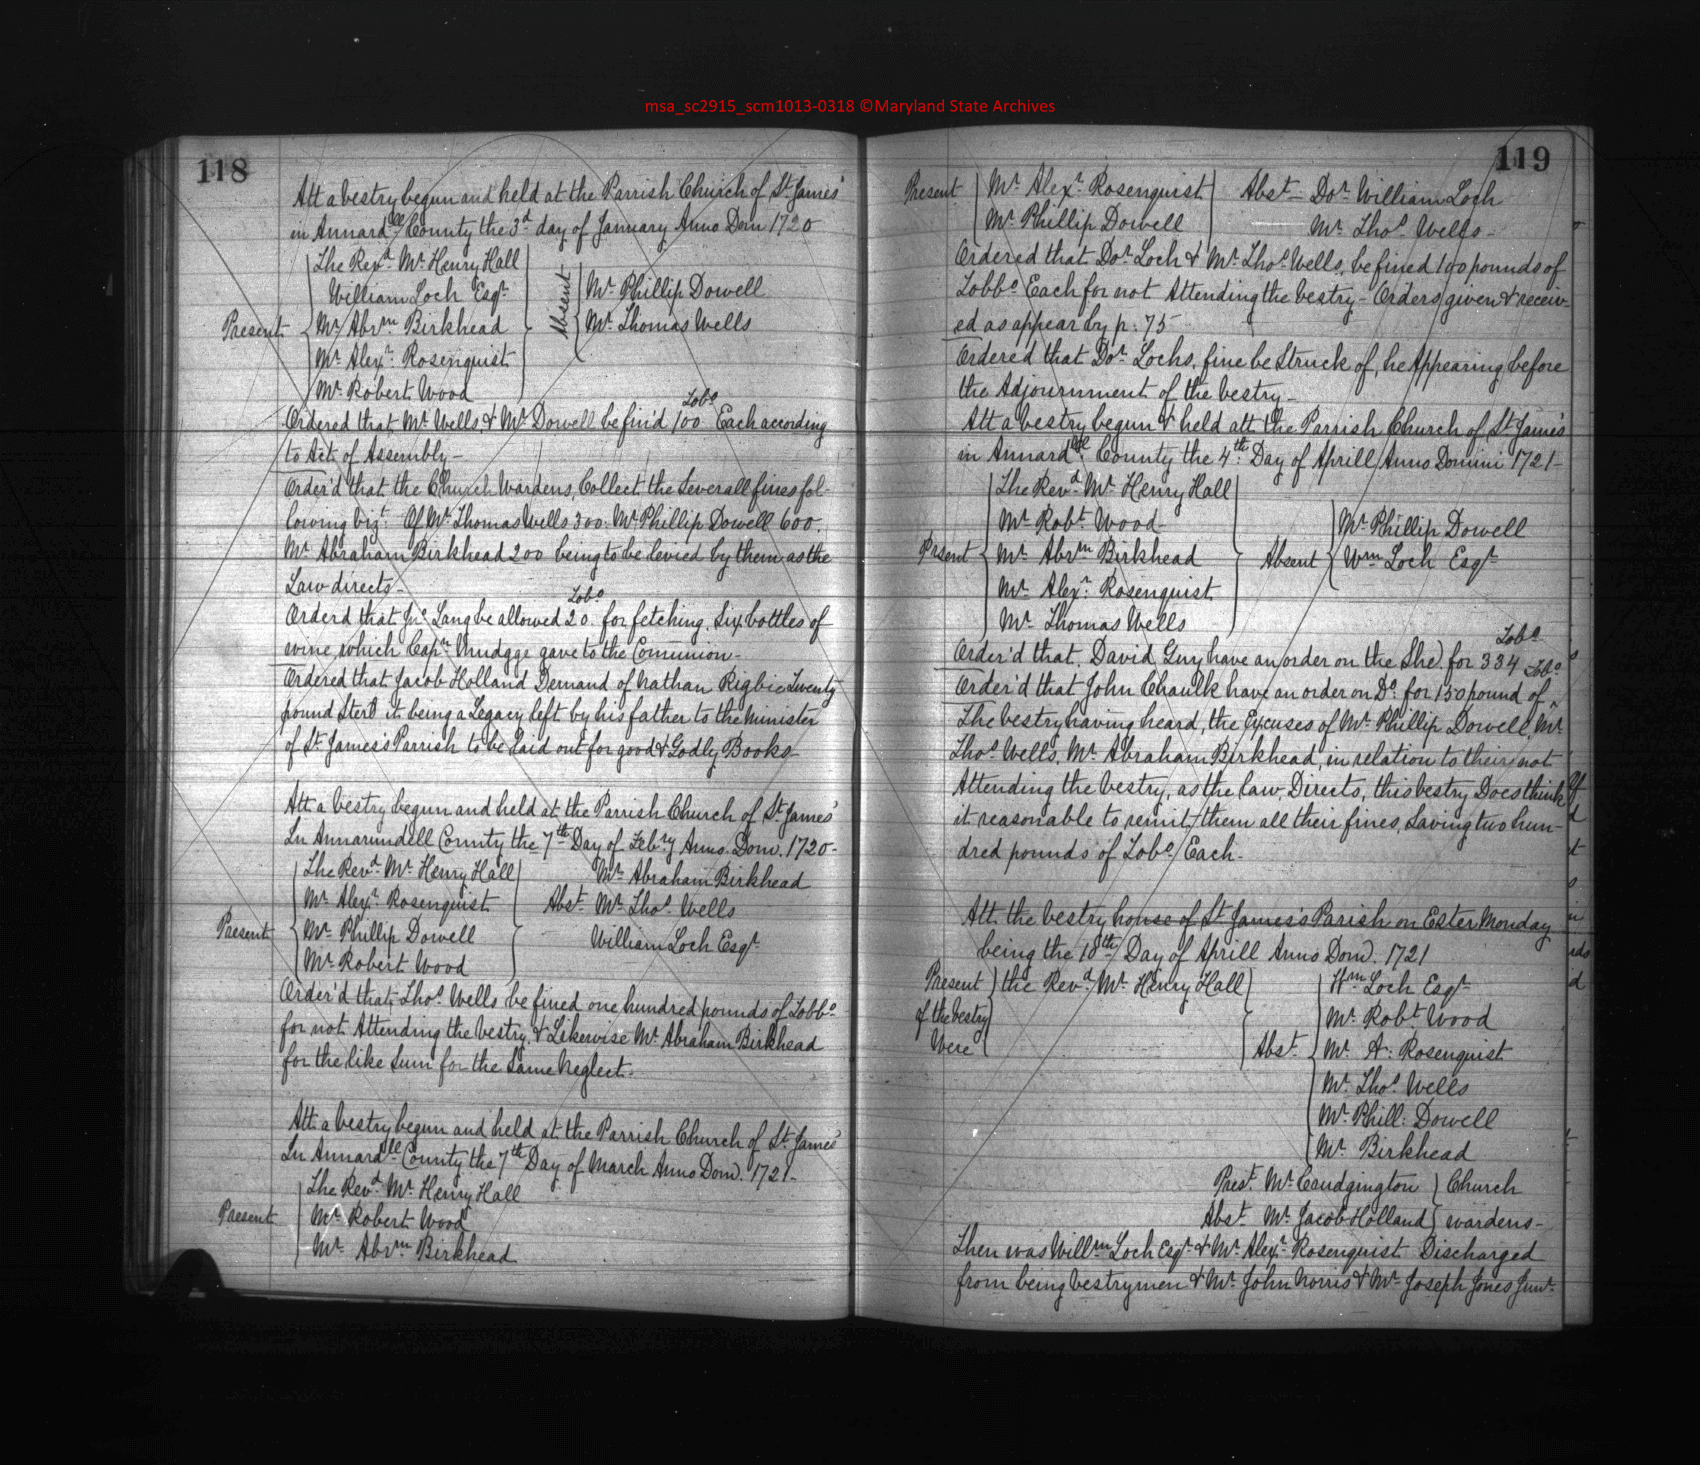 msa_sc2915_scm1013-0318 ©Maryland State Archives
118
Att a vestry begun and held at the Parrish Church of St James'
in Annardll County the 3d day of January Anno Dom 1720
The Revd Mr Henry Hall
William Loch Esqr
Present Mr Abrm Birkhead
Mr Alexr Rosenquist
Mr Robert Wood
Absent
Mr Phillip Dowell
Mr Thomas Wells
Tobo
Ordered that Mr Wells & Mr Dowell be fin'd 100 Each according
to Act of Assembly-
Order'd that the Church Wardens, Collect the Severall fines fol-
lowing vizt. Of Mr Thomas Wells 300. Mr Phillip Dowell 600.
Mr Abraham Birkhead 200 being to be levied by them as the
Law directs-
Tobo
Orderd that Jno Lang be allowed 20 for fetching Six bottles of
wine which Capn Mudgge gave to the Comunion-
Ordered that Jacob Holland Demand of Nathan Rigbie Twenty
pound Sterl it being a Legacy left by his father to the Minister
of St James's Parrish to be Laid out for good & Godly Books-
Att a Vestry begun and held at the Parrish Church of St James'
In Annarundell County the 7th Day of Febry Anno Dom. 1720-
The Revd Mr Henry Hall
Mr Alexr Rosenquist
Present Mr Phillip Dowell
Mr Robert Wood
Mr Abraham Birkhead
Abst Mr Thos Wells
William Loch Esqr
Order'd that Thos Wells be fined one hundred pounds of Tobbo
for not Attending the Vestry, & Likewise Mr Abraham Birkhead
for the like Sum for the Same Neglect.
Att a Vestry begun and held at the Parrish Church of St James'
In Annardll County the 7th Day of March Anno Dom. 1721-
The Revd Mr Henry Hall
Present Mr Robert Wood
Mr Abrm Birkhead
119
Present Mr Alexr Rosenquist Abst- Dor William Loch
Mr Phillip Dowell Mr Thos Wells-
Ordered that Dor Loch & Mr Thos Wells, be fined 100 pounds of
Tobbo Each for not Attending the Vestry- Orders given & receiv-
ed as appear by p: 75
Ordered that Dor Lochs, fine be Struck of, he Appearing before
the Adjournment of the Vestry-
Att a Vestry begun & held att the Parrish Church of St James'
in Annardll County the 4th Day of Aprill Anno Domini 1721-
The Revd Mr Henry Hall
Mr Robt Wood
Present Mr Abrm Birkhead
Mr Alexr Rosenquist
Mr Thomas Wells
Absent
Mr Phillip Dowell
Wm Loch Esqr
Tobo
Order'd that David Guy have an order on the She) for 334
Tobo
Order'd that John Chaulk have an order on Do for 150 pound of
The Vestry having heard, the Excuses of Mr Phillip Dowell, Mr
Thos Wells, Mr Abraham Birkhead, in relation to their not
Attending the Vestry, as the Law, Directs, this Vestry Does think
it reasonable to remit them all their fines, Saving two hun-
dred pounds of Tobo Each.
Att the Vestry house of St James's Parish on Ester Monday
being the 10th Day of Aprill Anno Dom. 1721
Present the Revd Mr Henry Hall
of the Vestry
Were
Abst.
Wm Loch Esqr
Mr Robt Wood
Mr A: Rosenquist
Mr Thos Wells
Mr Phill: Dowell
Mr Birkhead
Prest Mr Caudgington Church
Abst Mr Jacob Holland wardens-
Then was Willm Loch Esqr & Mr Alexr Rosenquist Discharged
from being Vestrymen & Mr John Norris & Mr Joseph Jones Junr